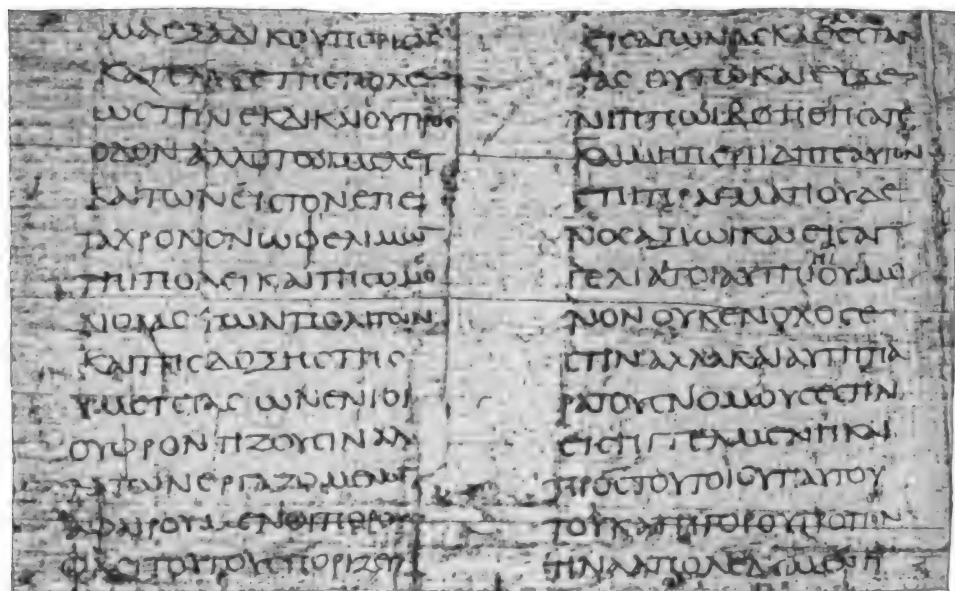 ΜΑΕΞΑΔΙΚΟΥΠΟΡΙϹΑϹ
ΚΑΤΕΛΥϹΕΤΗϹΠΟΛΕ
ΩϹΤΗΝΕΚΔΙΚΑΙΟΥΠΡΟϹ
ΟΔΟΝ
ΚΑΙΤΩΝΕΙϹΤΟΝΕΠΕΙ
ΤΑΧΡΟΝΟΝΩΦΕΛΙΜΩ
ΤΗΙΠΟΛΕΙΚΑΙΤΗϹΟΜΟ
ΝΟΙΑϹΤΩΝΠΟΛΙΤΩΝ
ΚΑΙΤΗϹΔΟΞΗϹΤΗϹ
ΥΜΕΤΕΡΑϹΩΝΕΝΙΟΙ
ΟΥΦΡΟΝΤΙΖΟΥϹΙΝΑΛ
ΛΑΤΩΝΕΡΓΑΖΟΜΕΝΩ
ΑΦΑΙΡΟΥΜΕΝΟΙΠΟΡΟΥϹ
ΦΑϹΙΤΟΥΤΟΥϹΠΟΡΙΖΕΙ
ΕΙϹΑΓΩΝΑϹΚΑΘΕϹΤΑΝ
ΤΑϹΟΥΤΩΚΑΙΕΥΞΕ
ΝΙΠΠΩΙΒΟΗΘΗϹΑΤΕ
ΚΑΙΜΗΠΕΡΙΙΔΗΤΕΑΥΤΟΝ
ΕΠΙΠΡΑΓΜΑΤΙΟΥΔΕ
ΝΟϹΑΞΙΩΙΚΑΙΕΙϹΑΓ
ΓΕΛΙΑΙΤΟΙΑΥΤΗΙΗΙΟΥΜΟ
ΝΟΝΟΥΚΕΝΟΧΟϹΕ
ϹΤΙΝΑΛΛΑΚΑΙΑΥΤΗΠΑ
ΡΑΤΟΥϹΝΟΜΟΥϹΕϹΤΙΝ
ΕΙϹΗΓΓΕΛΜΕΝΗΚΑΙ
ΠΡΟϹΤΟΥΤΟΙϹΥΠΑΥΤΟΥ
ΤΟΥΚΑΤΗΓΟΡΟΥΤΡΟΠΟΝ
ΤΙΝΑΑΠΟΛΕΛΥΜΕΝΗ